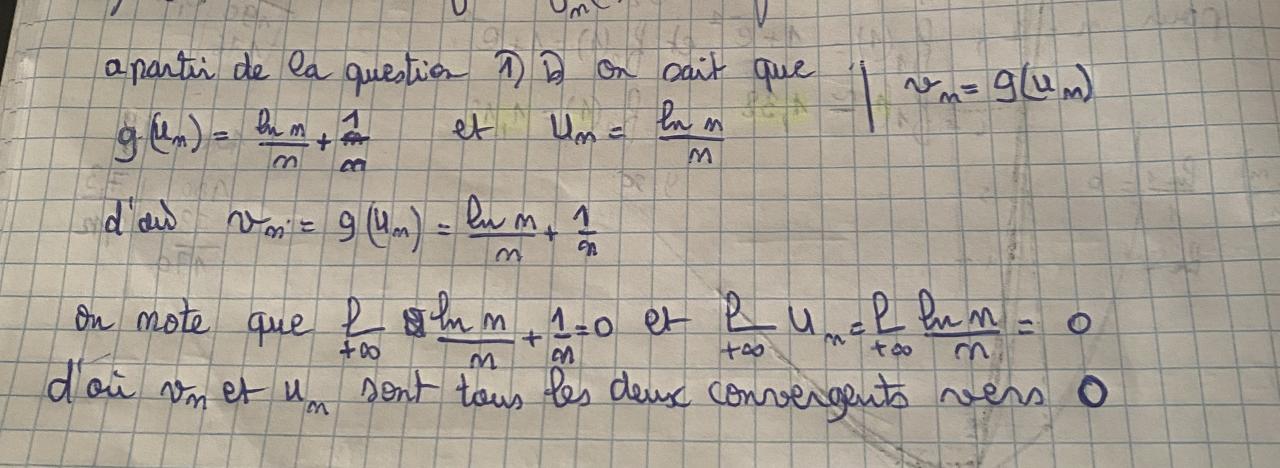 a partir de la question 1) b) on sait que | vₙ = g(uₙ)
g(uₙ) = ln n / n + 1/n et uₙ = ln n / n
d'où vₙ = g(uₙ) = ln n / n + 1/n
on note que l +∞ ln n / n + 1/n = 0 et l +∞ uₙ = l +∞ ln n / n = 0
d'où vₙ et uₙ sont tous les deux convergents vers 0